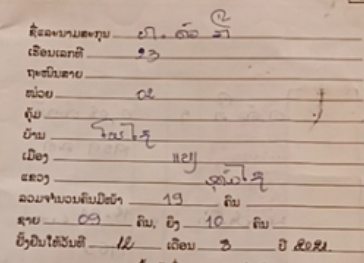 ຊື່ແລະນາມສະກຸນ ທ. ຄຳ
ເຮືອນເລກທີ 23
ຖະໜົນສາຍ
ໜ່ວຍ 02
ຄຸ້ມ
ບ້ານ ໂພໄຊ
ເມືອງ ແບງ
ແຂວງ ອຸດົມໄຊ
ລວມຈຳນວນຄົນມີໜ້າ 19 ຄົນ
ຊາຍ 09 ຄົນ, ຍິງ 10 ຄົນ
ຢັ້ງຢືນໃຫ້ວັນທີ 12 ເດືອນ 8 ປີ 2021